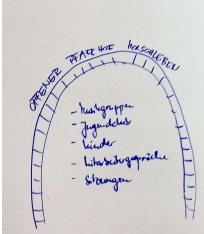 OFFENER PFARRHOF
- Musikgruppen
- Jugendclub
- Kinder
- Mitarbeitergespräche
- Sitzungen